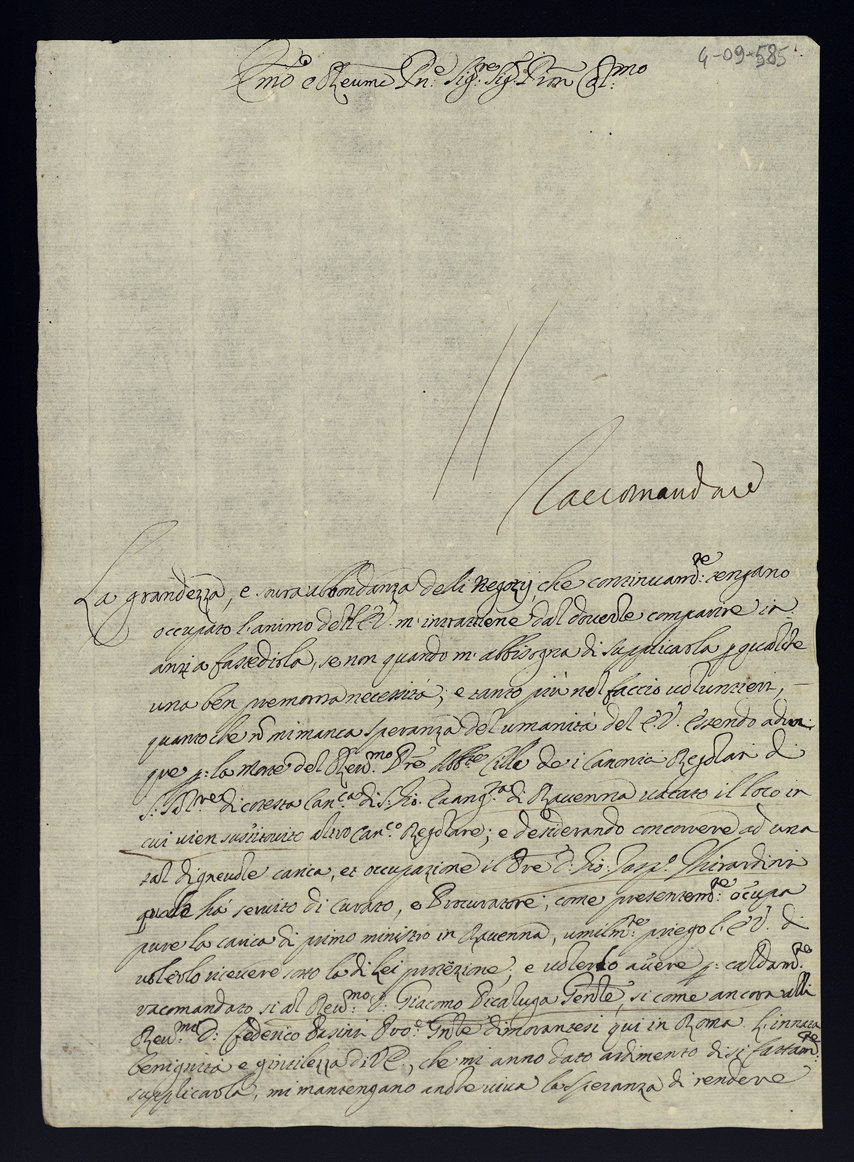 4-09-585
Emo e Reumo Pne: Sigre: Sige Pron Colmo
Raccomandare
La grandezza, e rara abbondanza deli Negozij che continuamte: tengano
occupato l'animo dell'E.V. m'intrattiene dal doverle comparire in-
anzi a fastedirla, se non quando m'abbisogna di supplicarla p qualche
una ben premorosa necessità; e tanto più nel faccio volontieri, –
quanto che nō mi manca speranza del umanità del E.V. Essendo adun-
que p: la Morte del Reumo: Pre Abbte Cille de i Canonici Regolari di
S: Salvre di cotesta Canca di S: Gio: Evangta di Ravenna vaccato il loco in
cui vien sustituito altro Canco Regolare; e desiderando concorrere ad una
tal dignevole carica, et occupazione il Pre D. Gio: Gaspo Ghirardini
quale há servito di Curato, e Procuratore, come presentemte: ocupa
pure la carica di primo ministro in Ravenna, umilmte: priego l'E.V. di
volerlo ricevere sotto la di Lei protezione, e volerlo avere p: caldamte
racomandato si al Reumo: D. Giacomo Picaluga Genle, si come ancora alli
Reumo D: Federico Pasini Proc Gnle dimorantesi qui in Roma. L'innata
benignità e gintilezza di V.E, che mi anno dato ardimento di si fattamte:
supplicarla, mi mantengano anche viva la speranza di rendere